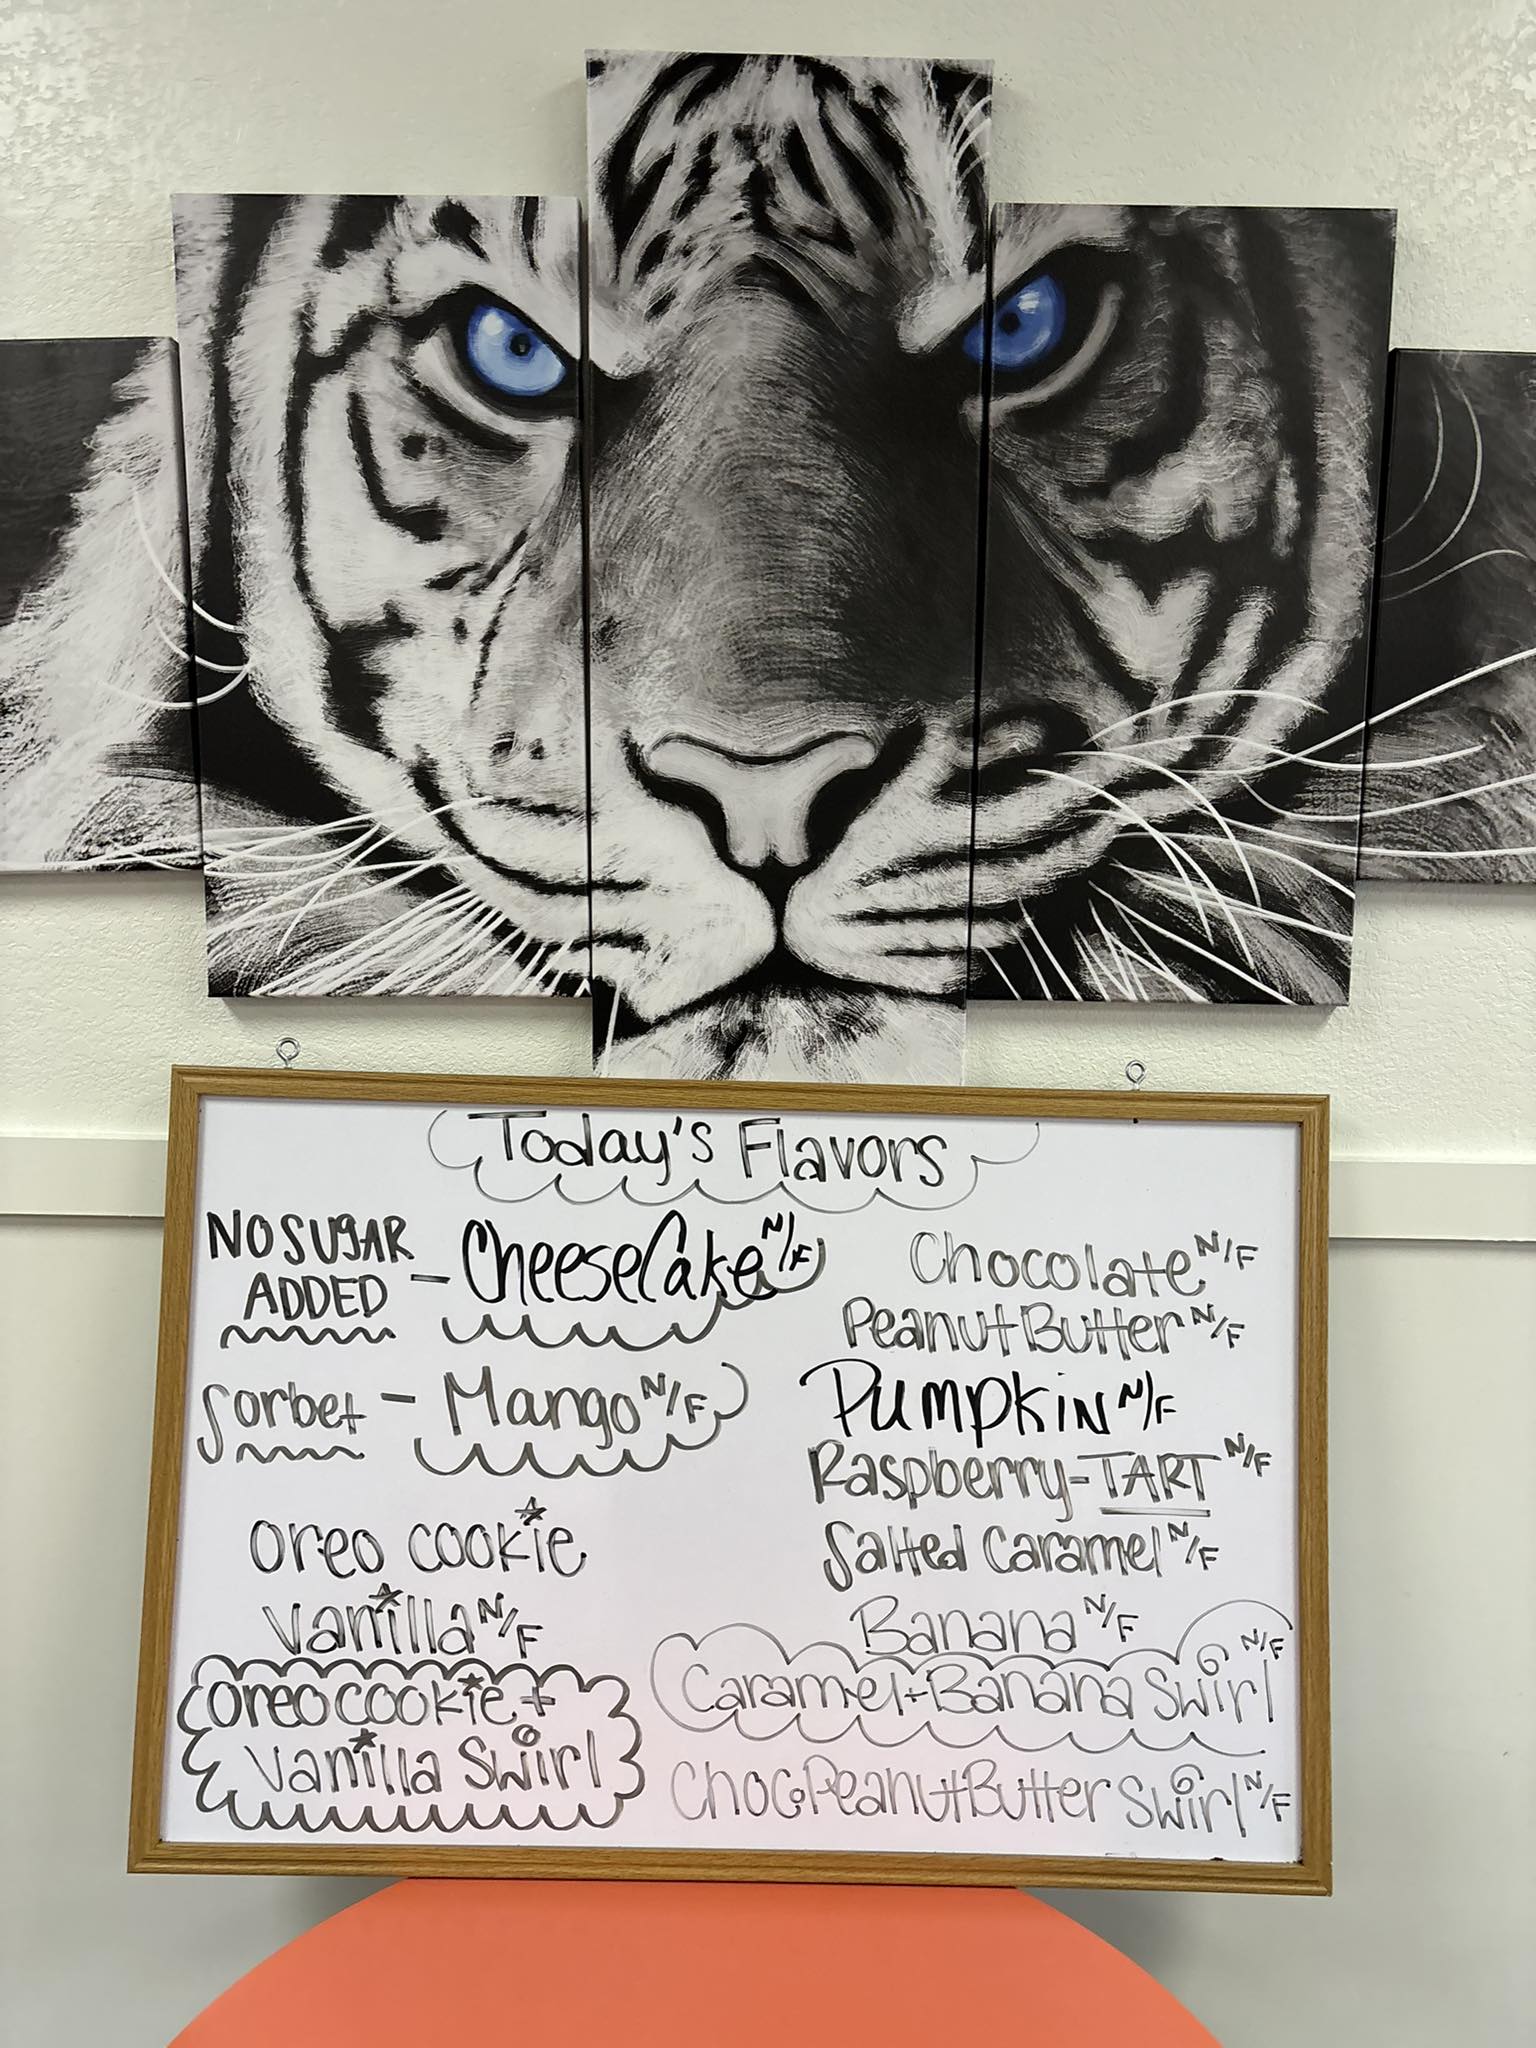 Today's Flavors
NO SUGAR ADDED - CheeseCake N/F
Sorbet - Mango N/F
Oreo cookie
Vanilla N/F
Oreo cookie +
Vanilla Swirl
Chocolate N/F
Peanut Butter N/F
Pumpkin N/F
Raspberry-TART N/F
Salted Caramel N/F
Banana N/F
Caramel+Banana Swirl N/F
Choc.Peanut Butter Swirl N/F